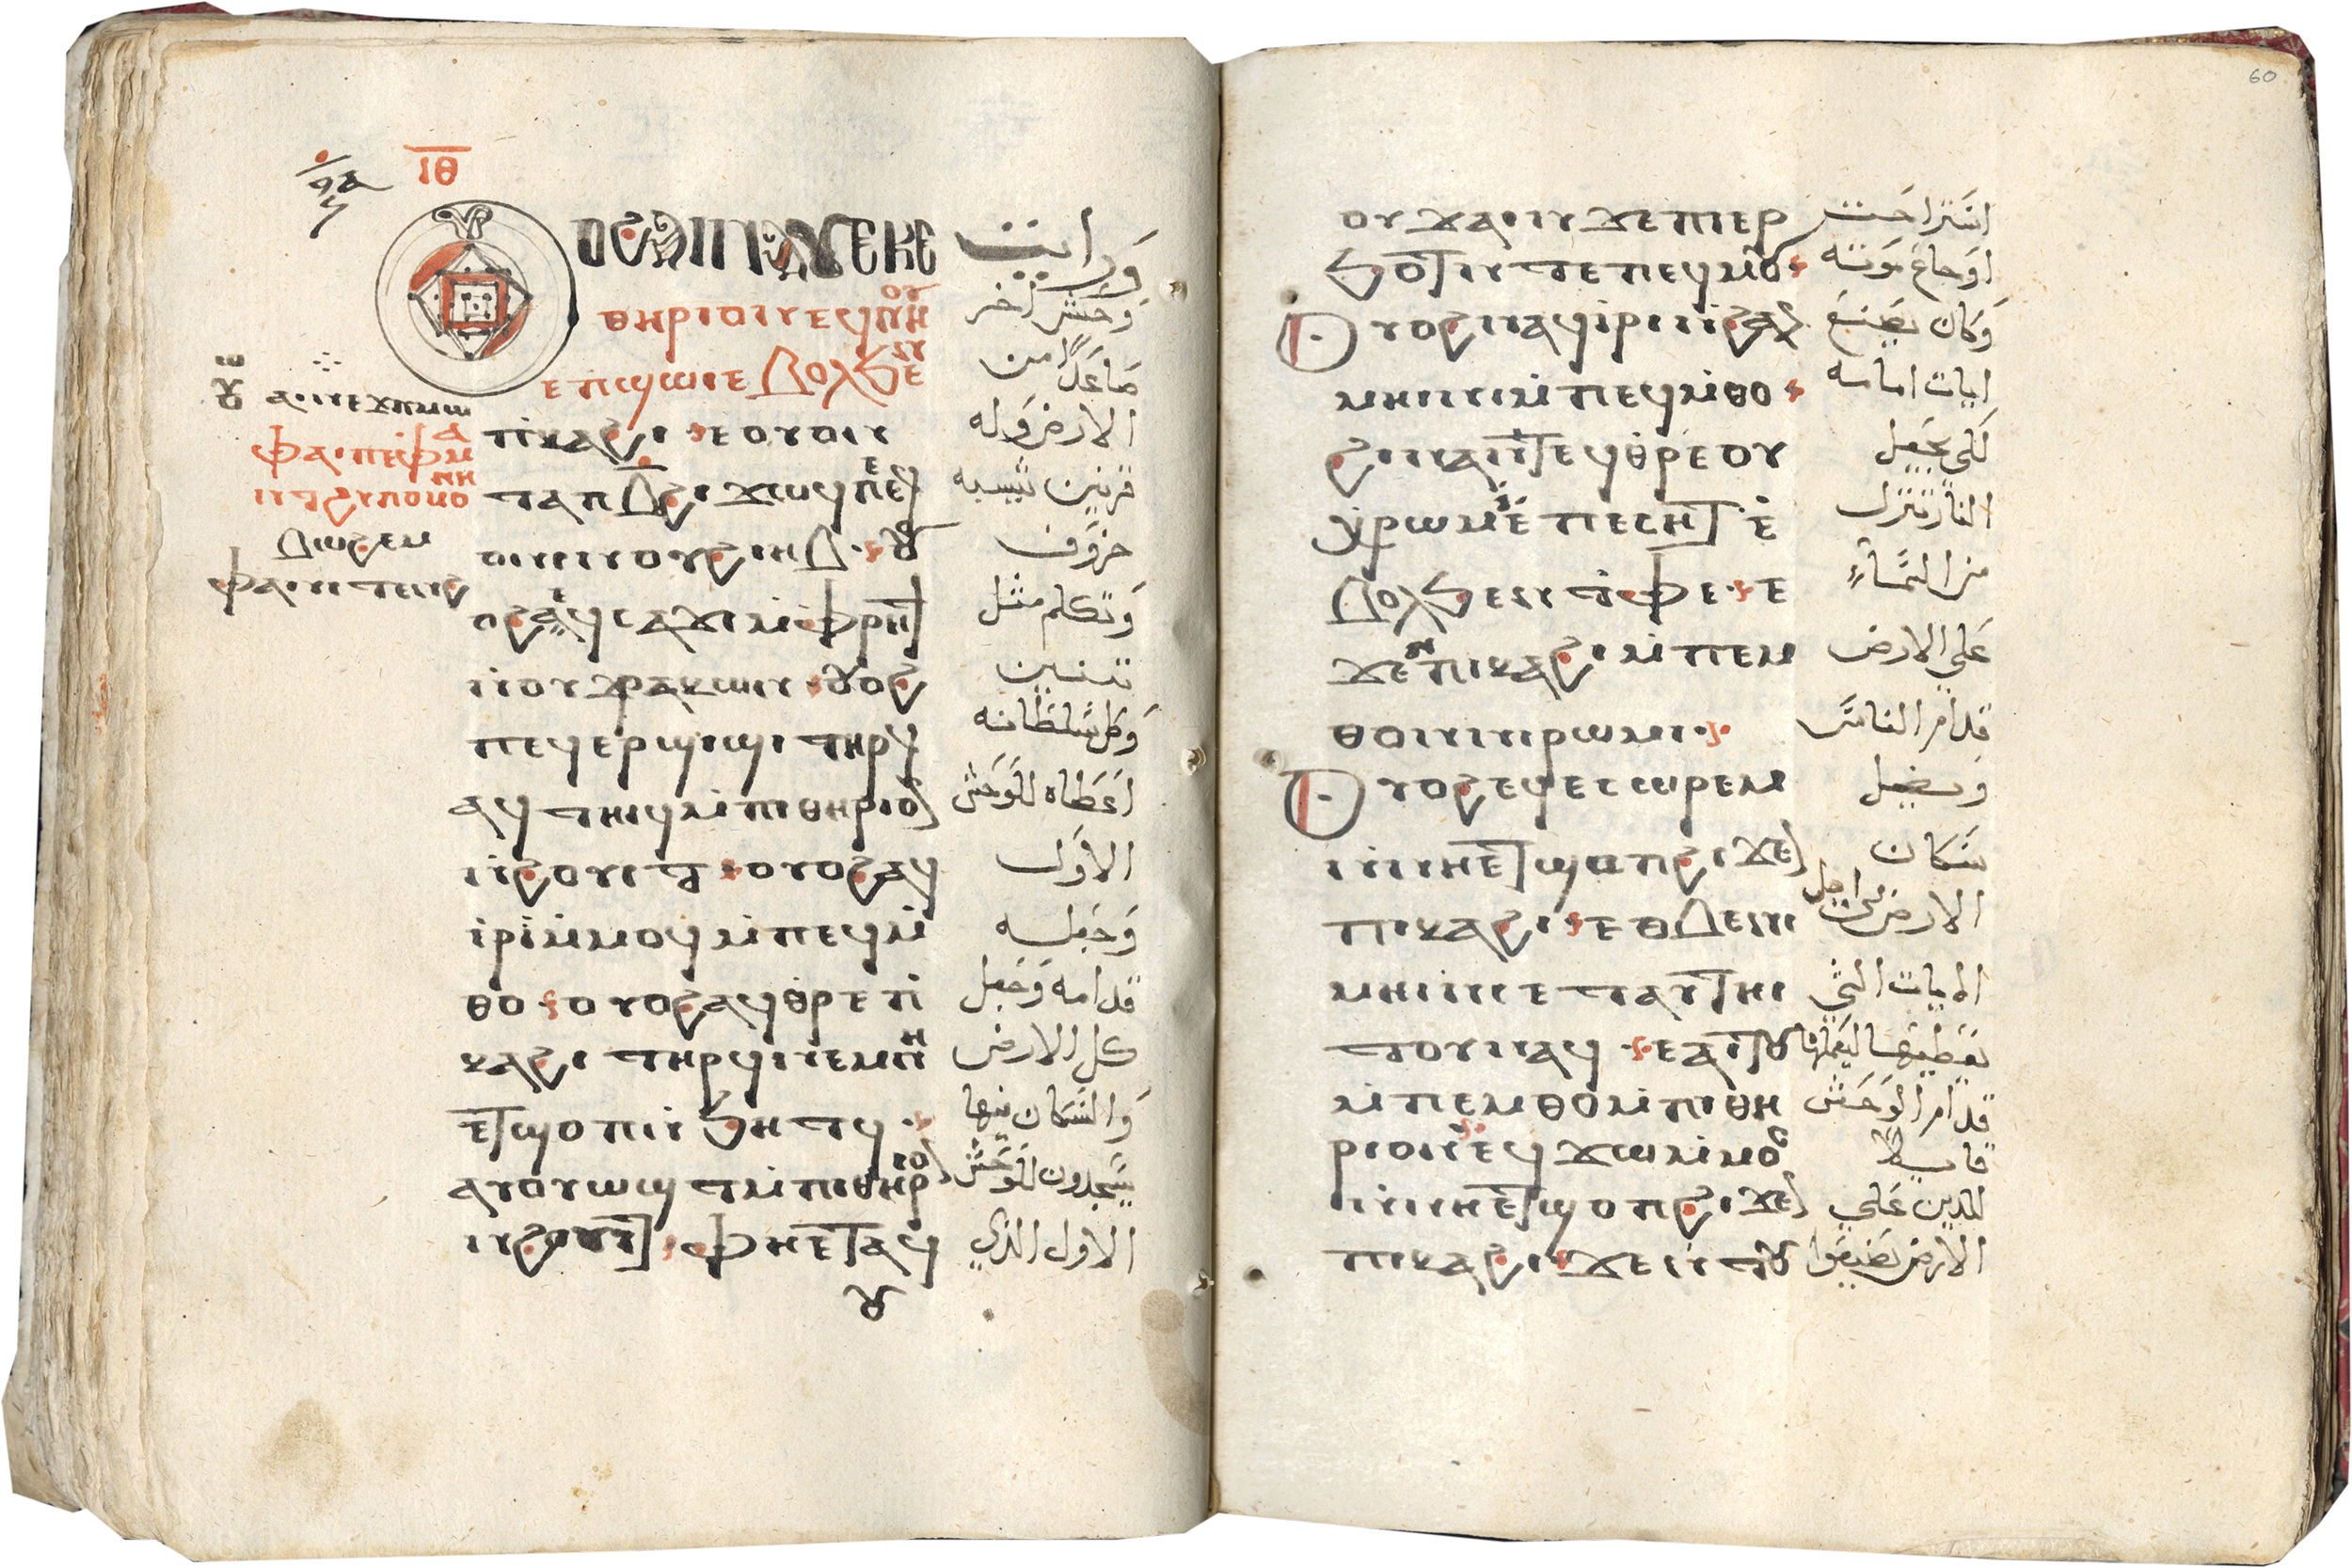 ⲓ̅ⲑ̅
ⲟⲩⲟϩ ⲁⲓⲛⲁⲩ ⲉⲕⲉ
ⲑⲏⲣⲓⲟⲛ ⲉϥⲛⲏⲟⲩ
ⲉⲡϣⲱⲓ ⲉⲃⲟⲗϧⲉⲛ
ⲡⲓⲕⲁϩⲓ ⲉⲟⲩⲟⲛ
ⲧⲁⲡ ⲃ̅ ϩⲓϫⲱϥ ⲡⲉ ⲉϥ
ⲟⲓⲛⲓ ⲛⲟⲩϩⲓⲏⲃ ⲟⲩ
ⲟϩ ⲁϥⲥⲁϫⲓ ⲙ̀ⲫⲣⲏϯ
ⲛ̀ⲟⲩⲇⲣⲁⲕⲱⲛ ⲟⲩⲟϩ
ⲡⲉϥⲉⲣϣⲓϣⲓ ⲧⲏⲣϥ
ⲁϥⲧⲏⲓϥ ⲙ̀ⲡⲓⲑⲏⲣⲓⲟⲛ
ⲛ̀ϩⲟⲩⲓⲧ ⲟⲩⲟϩ ⲁϥ
ⲓ̀ⲣⲓ ⲙ̀ⲙⲟϥ ⲙ̀ⲡⲉϥⲙ̀
ⲑⲟ ⲟⲩⲟϩ ⲁϥⲑ̀ⲣⲉ ⲡⲓ
ⲕⲁϩⲓ ⲧⲏⲣϥ ⲛⲉⲙ ⲛⲏ
ⲉⲧϣⲟⲡ ⲛ̀ϧⲏⲧϥ
ⲁⲩⲟⲩⲱϣⲧ ⲙ̀ⲡⲓⲑⲏⲣⲓⲟⲛ
ⲛ̀ϩⲟⲩⲓⲧ ⲫⲏⲉⲧⲁϥ
ⲟⲩ
ورايت
وحش اخر
صاعدًا من
الارض وله
قرنين تشبه
خروف
وتكلم مثل
تنين
وكل سلطانه
اعطاه للوحش
الاول
وجعله
قدامه وجعل
كل الارض
والسكان فيها
يسجدون للوحش
الاول الذي
60
ⲟⲩϫⲁⲓ ⲛ̀ϫⲉ ⲡⲓⲉⲣ
ϧⲟⲧ ⲛ̀ⲧⲉ ⲡⲉϥⲙⲟⲩ
ⲟⲩⲟϩ ⲛⲁϥⲓ̀ⲣⲓ ⲛ̀ϩⲁⲛ
ⲙⲏⲓⲛⲓ ⲙ̀ⲡⲉϥⲙ̀ⲑⲟ
ϩⲓⲛⲁ ⲛ̀ⲧⲉϥⲑ̀ⲣⲉ ⲟⲩ
ⲭ̀ⲣⲱⲙ ⲓ̀ ⲉ̀ⲡⲉⲥⲏⲧ ⲉ̀
ⲃⲟⲗϧⲉⲛ ⲧ̀ⲫⲉ ⲉ
ϫⲉⲛ ⲡⲓⲕⲁϩⲓ ⲙ̀ⲡⲉⲙ
ⲑⲟ ⲛ̀ⲛⲓⲣⲱⲙⲓ
ⲟⲩⲟϩ ⲉϥⲉⲥⲱⲣⲉⲙ
ⲛ̀ⲛⲏⲉⲧϣⲟⲡ ϩⲓϫⲉⲛ
ⲡⲓⲕⲁϩⲓ ⲉⲑⲃⲉ ⲛⲓ
ⲙⲏⲓⲛⲓ ⲉⲧⲁⲩⲧⲏⲓ
ⲧⲟⲩ ⲛⲁϥ ⲉⲁⲓⲧⲟⲩ
ⲙ̀ⲡⲉⲙⲑⲟ ⲙ̀ⲡⲓⲑⲏ
ⲣⲓⲟⲛ ⲉϥϫⲱ ⲙ̀ⲙⲟⲥ
ⲛ̀ⲛⲏⲉⲧϣⲟⲡ ϩⲓϫⲉⲛ
ⲡⲓⲕⲁϩⲓ ϫⲉ ⲛ̀ⲧⲟⲩ
استراحت
اوجاع موته
وكان يصنع
ايات امامه
لكي يجعل
النار تنزل
من السماء
علي الارض
قدام الناس
ويضل
سكان
الارض من اجل
الايات التي
قدام الوحش
قايلًا
للذين علي
الارض